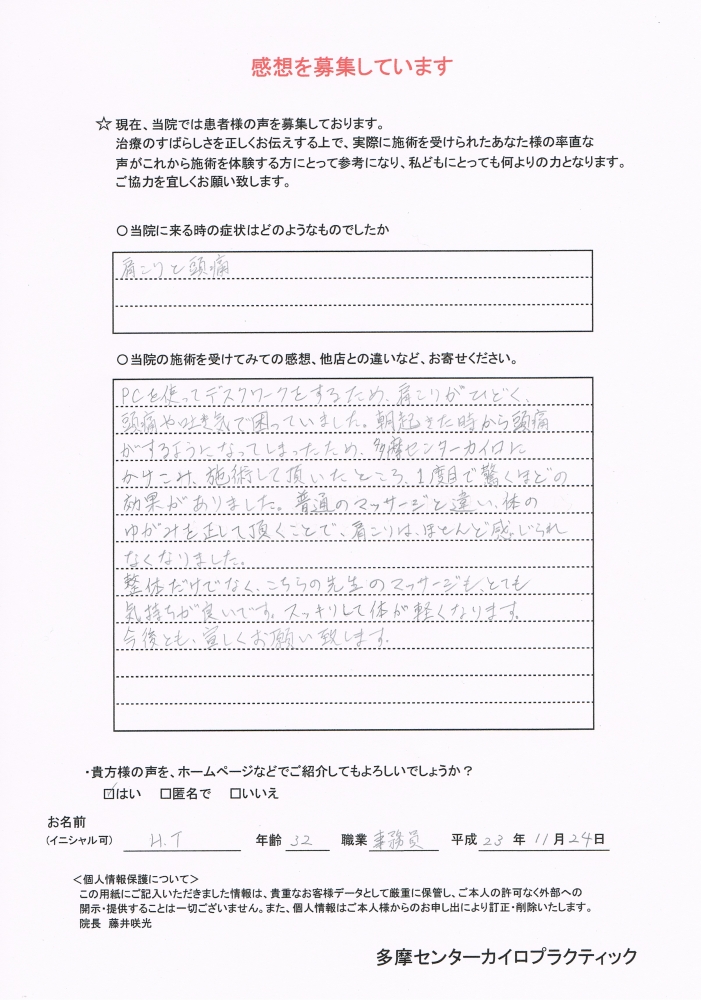 感想を募集しています
☆現在、当院では患者様の声を募集しております。
治療のすばらしさを正しくお伝えする上で、実際に施術を受けられたあなた様の率直な
声がこれから施術を体験する方にとって参考になり、私どもにとっても何よりの力となります。
ご協力を宜しくお願い致します。
○当院に来る時の症状はどのようなものでしたか
肩こりと頭痛
○当院の施術を受けてみての感想、他店との違いなど、お寄せください。
PCを使ってデスクワークをするため、肩こりがひどく、
頭痛や吐き気で困っていました。朝起きた時から頭痛
がするようになってしまったため、多摩センターカイロに
かけこみ、施術して頂いたところ、1度目で驚くほどの
効果がありました。普通のマッサージと違い、体の
ゆがみを正して頂くことで、肩こりは、ほとんど感じられ
なくなりました。
整体だけでなく、こちらの先生のマッサージも、とても
気持ちが良いです。スッキリして体が軽くなります。
今後とも、宜しくお願い致します。
・貴方様の声を、ホームページなどでご紹介してもよろしいでしょうか？
☑はい □匿名で □いいえ
お名前
(イニシャル可) H.T 年齢 32 職業 事務員 平成 23 年 11月24日
＜個人情報保護について＞
この用紙にご記入いただきました情報は、貴重なお客様データとして厳重に保管し、ご本人の許可なく外部への
開示・提供することは一切ございません。また、個人情報はご本人様からのお申し出により訂正・削除いたします。
院長 藤井咲光
多摩センターカイロプラクティック